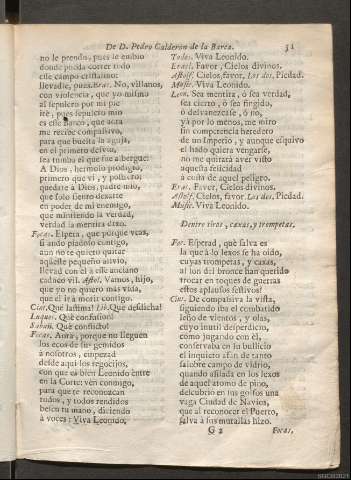 De D. Pedro Calderon de la Barca. 51
no le prendo, pues le embio
donde pueda correr todo
esse campo cristalino:
llevadle, pues. Erac. No, villanos,
con violencia, que yo mismo
al sepulcro por mi pie
irè, pues sepulcro mio
es esse Barco, que aora
me recibe compassivo,
para que buelta la aguja,
en el primero desvio,
sea tumba el que fue albergue:
A Dios, hermoso prodigio,
primero que vi, y postrero:
quedate à Dios, padre mio,
que solo siento dexarte
en poder de mi enemigo,
que mintiendo la verdad,
verdad la mentira dixo.
Focas. Espera, que porque veas,
si ando piadoso contigo,
aun no te quiero quitar
aquesse pequeño alivio,
llevad con èl à esse anciano
caduco vil. Astol. Vamos, hijo,
que yo no quiero mas vida,
que el ir à morir contigo.
Cint. Què lastima! Lib. Què desdicha!
Luquet. Què confusion!
Sabañ. Què conflicto!
Focas. Aora, porque no lleguen
los ecos de sus gemidos
à nosotros, empezad
desde aqui los regocijos,
con que es bien Leonido entre
en la Corte: vèn conmigo,
para que te reconozcan
todos, y todos rendidos
besen tu mano, diciendo
à voces: Viva Leonido.
Todos. Viva Leonido.
Eracl. Favor, Cielos divinos.
Astolf. Cielos, favor. Los dos. Piedad.
Music. Viva Leonido.
Leon. Sea mentira, ò sea verdad,
sea cierto, ò sea fingido,
ò desvanezcase, ò no,
yà por lo menos, me miro
sin competencia heredero
de un Imperio, y aunque esquivo
el hado quiera vengarse,
no me quitarà aver visto
aquesta felicidad
à costa de aquel peligro.
Erac. Favor, Cielos divinos.
Astolf. Cielos, favor. Los dos. Piedad.
Music. Viva Leonido.
Dentro tiros, caxas, y trompetas.
Foc. Esperad, què salva es
la que à lo lexos se ha oido,
cuyas trompetas, y caxas,
al son del bronce han querido
trocar en toques de guerras
estos aplausos festivos?
Cint. De compassiva la vista,
siguiendo iba el combatido
leño de vientos, y olas,
cuyo inutil desperdicio,
como jugando con èl,
conservaba en su bullicio
el inquieto afan de tanto
salobre campo de vidrio,
quando assilada en los lexos
de aquel atomo de pino,
descubriò en sus golfos una
vaga Ciudad de Navios,
que al reconocer el Puerto,
salva à sus murallas hizo.
G 2 Focas.